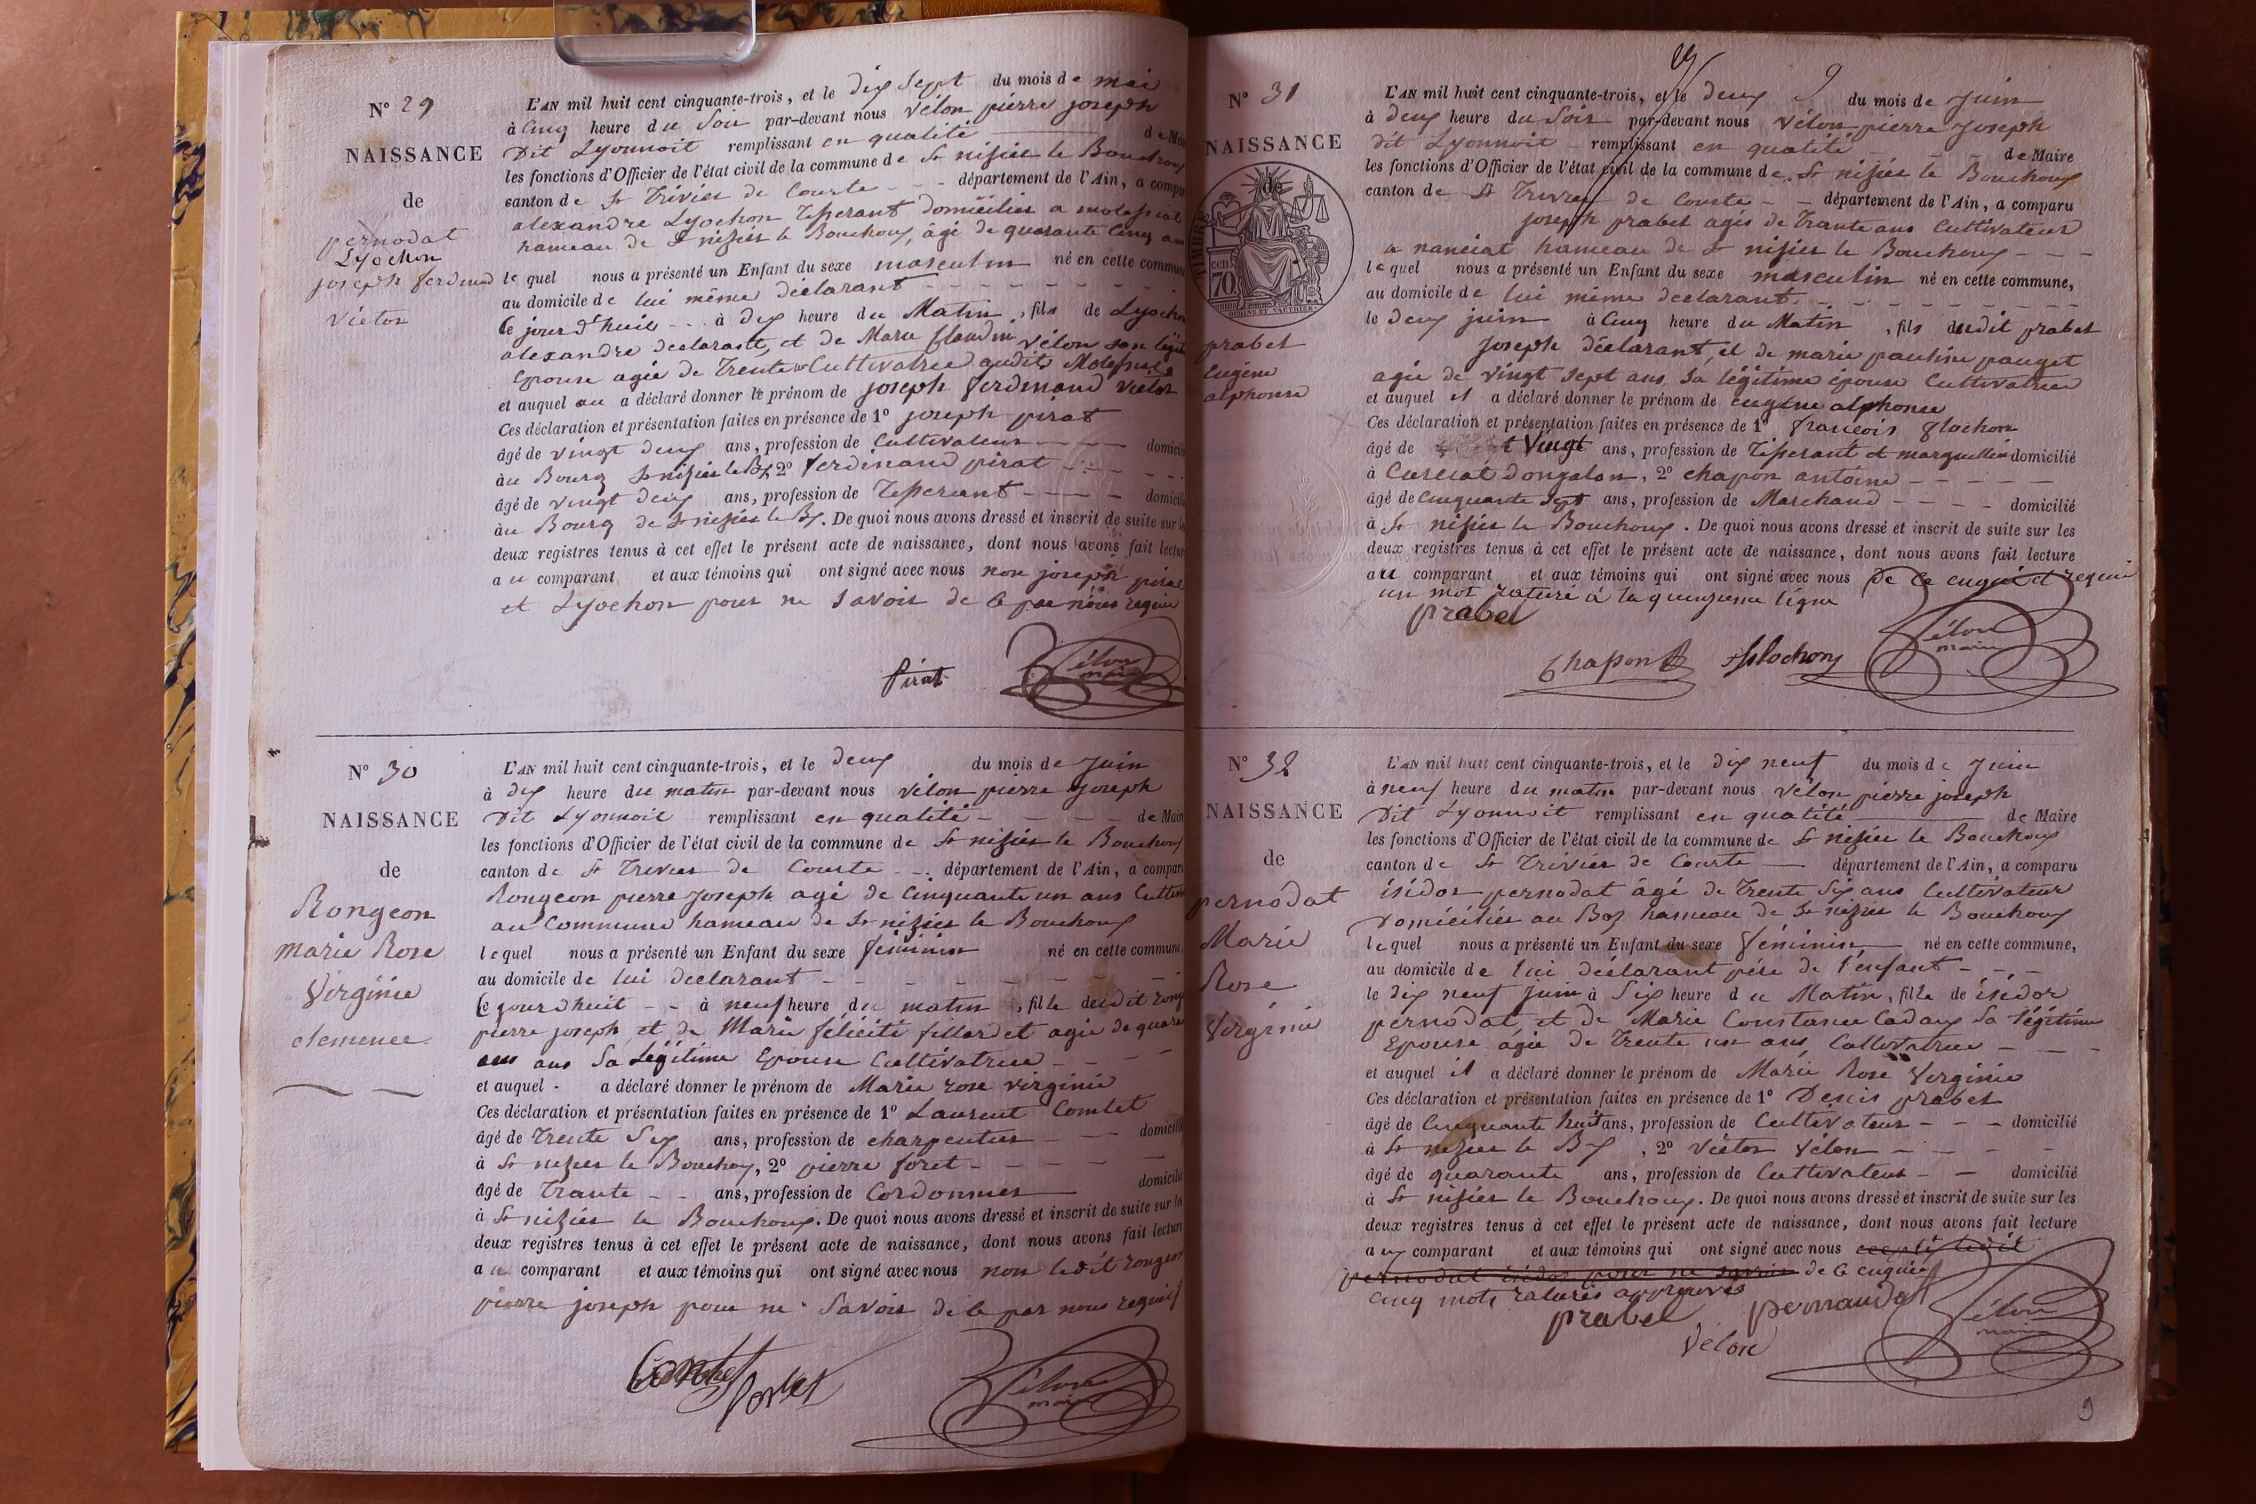 N° 29
NAISSANCE
de
pernodat
Lyochon
joseph ferdinand
victor
L'AN mil huit cent cinquante-trois, et le dix Sept du mois de mai
à Cinq heure du Soir par-devant nous vélon pierre joseph
Dit Lyonnoit remplissant en qualité de Mai
les fonctions d'Officier de l'état civil de la commune de St nisier le Bouchoux
canton de St Trivier de Courte département de l'Ain, a compa
alexandre Lyochon Tisserant domicilier a
hameau de St nizier le Bouchoux, âgé de quarante Cinq ans
lequel nous a présenté un Enfant du sexe masculin né en cette commun
au domicile de lui même déclarant
Ce jour d'hui à dix heure du Matin, fils de Lyochon
alexandre declarant, et de Marie Claudin vélon son légit
Epouse agée de Trente Cultivatrice audits
et auquel au a déclaré donner le prénom de joseph ferdinand victor
Ces déclaration et présentation faites en présence de 1° joseph pirat
âgé de vingt deux ans, profession de Cultivateur domicilié
au Bourg St nizier le Bx, 2° ferdinand pirat
âgé de vingt deux ans, profession de Tisserant domicilié
au Bourg de St nizier le Bx. De quoi nous avons dressé et inscrit de suite sur les
deux registres tenus à cet effet le présent acte de naissance, dont nous avons fait lecture
au comparant et aux témoins qui ont signé avec nous non joseph pirat
et Lyochon pour ne savoir de ce par nous requis
Pirat Vélon
maire
N° 30
NAISSANCE
de
Rongeon
marie Rose
Virginie
clemence
L'AN mil huit cent cinquante-trois, et le deux du mois de Juin
à dix heure du matin par-devant nous vélon pierre joseph
Dit Lyonnoit remplissant en qualité de Maire
les fonctions d'Officier de l'état civil de la commune de St nizier le Bouchoux
canton de St Trivier de Courte département de l'Ain, a compar
Rongeon pierre joseph agé de Cinquante un ans Cultiv
au Commune hameau de St nizier le Bouchoux
lequel nous a présenté un Enfant du sexe féminin né en cette commune
au domicile de lui declarant
Ce jourdhuit à neuf heure du matin, fille dudit rong
pierre joseph, et de Marie félicité fillardet agée de quara
ans Sa Légitime Epouse Cultivatrice
et auquel a déclaré donner le prénom de Marie rose virginie
Ces déclaration et présentation faites en présence de 1° Laurent Comtet
âgé de Trente Six ans, profession de charpentier domicilié
à St nizier le Bouchoux, 2° pierre foret
âgé de Trante ans, profession de Cordonnier domicilié
à St nizier le Bouchoux. De quoi nous avons dressé et inscrit de suite sur les
deux registres tenus à cet effet le présent acte de naissance, dont nous avons fait lecture
au comparant et aux témoins qui ont signé avec nous non ledit rongeon
pierre joseph pour ne Savoir de ce par nous requis
Comtet
Vélon
maire
9
N° 31
NAISSANCE
de
TIMBRE
70
prabel
Eugène
alphonse
L'AN mil huit cent cinquante-trois, et le deux du mois de Juin
à deux heure du Soir par-devant nous vélon pierre joseph
dit Lyonnoit remplissant en qualité de Maire
les fonctions d'Officier de l'état civil de la commune de St nizier le Bouchoux
canton de St Trivier de Courte département de l'Ain, a comparu
joseph prabel agés de Trante ans Cultivateur
a nanciat hameau de St nizier le Bouchoux
lequel nous a présenté un Enfant du sexe masculin né en cette commune,
au domicile de lui même déclarant
le deux juin à Cinq heure du Matin, fils dudit prabel
joseph déclarant, et de marie pauline pauget
agée de vingt sept ans Sa légitime épouse Cultivatrice
et auquel il a déclaré donner le prénom de eugène alphonse
Ces déclaration et présentation faites en présence de 1° francois flochon
âgé de Vingt ans, profession de Tisserant et marguillier domicilié
à Curciat dongalon, 2° chapon antoine
âgé de Cinquante Sept ans, profession de Marchand domicilié
à St nizier le Bouchoux. De quoi nous avons dressé et inscrit de suite sur les
deux registres tenus à cet effet le présent acte de naissance, dont nous avons fait lecture
au comparant et aux témoins qui ont signé avec nous de ce enquis et requis
un mot raturé à la quinzieme ligne
prabel
Chapon A flochon Vélon
maire
N° 32
NAISSANCE
de
pernodat
Marie
Rose
Virginie
L'AN mil huit cent cinquante-trois, et le dix neuf du mois de Juin
à neuf heure du matin par-devant nous vélon pierre joseph
Dit Lyonnoit remplissant en qualité de Maire
les fonctions d'Officier de l'état civil de la commune de St nizier le Bouchoux
canton de St Trivier de Courte département de l'Ain, a comparu
isidor pernodat âgé de Trente Six ans Cultivateur
Domicilier au hameau de St nizier le Bouchoux
lequel nous a présenté un Enfant du sexe féminin né en cette commune,
au domicile de lui déclarant père de l'enfant
le dix neuf juin à Six heure du Matin, fille de isidor
pernodat et de Marie Constance Cadoux Sa légitime
Epouse agée de Trente un ans Cultivatrice
et auquel il a déclaré donner le prénom de Marie Rose Virginie
Ces déclaration et présentation faites en présence de 1° Denis prabel
âgé de Cinquante huit ans, profession de Cultivateur domicilié
à St nizier le Bx, 2° Victor Vélon
âgé de quarante ans, profession de Cultivateur domicilié
à St nizier le Bouchoux. De quoi nous avons dressé et inscrit de suite sur les
deux registres tenus à cet effet le présent acte de naissance, dont nous avons fait lecture
aux comparant et aux témoins qui ont signé avec nous excepté ledit
pernodat isidor pour ne savoir de ce enquis
Cinq mots raturés approuvés
prabel pernaudat
Velon
Vélon
maire
9